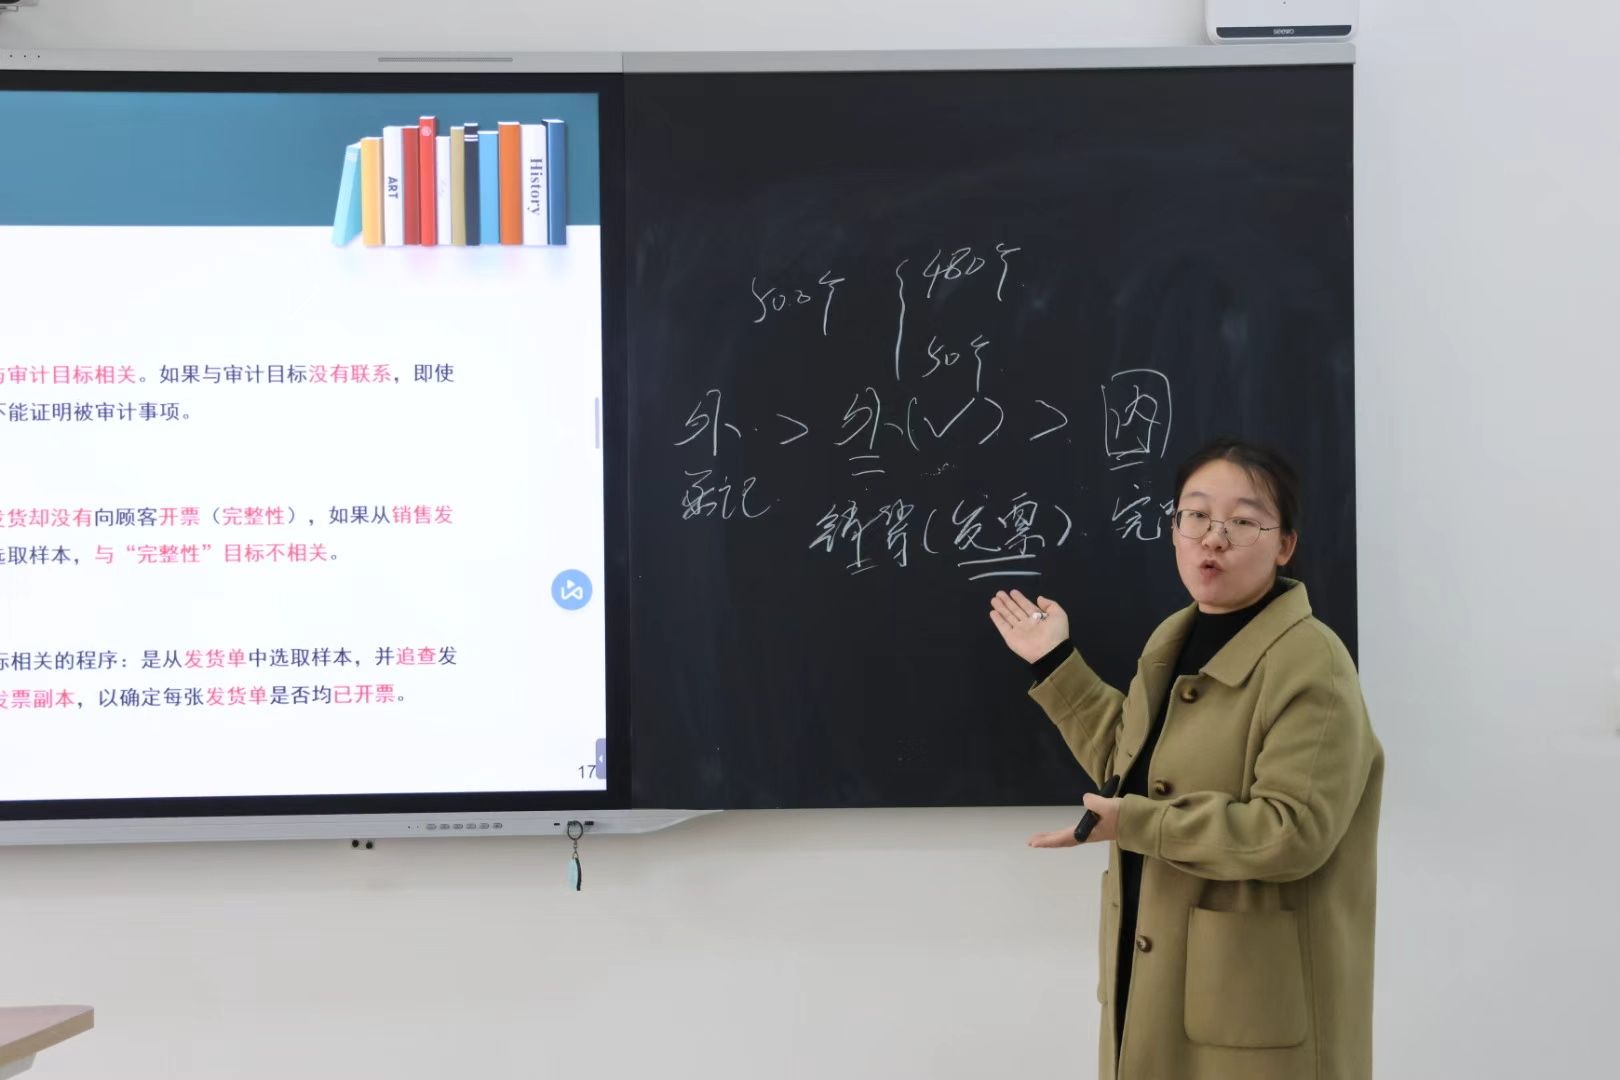 seewo
ART
History
与审计目标相关。如果与审计目标没有联系，即使
不能证明被审计事项。
发货却没有向顾客开票（完整性），如果从销售发
选取样本，与“完整性”目标不相关。
标相关的程序：是从发货单中选取样本，并追查发
发票副本，以确定每张发货单是否均已开票。
17
500个 { 480个
50个
外 > 外(√) > 内
销售(发票) 完